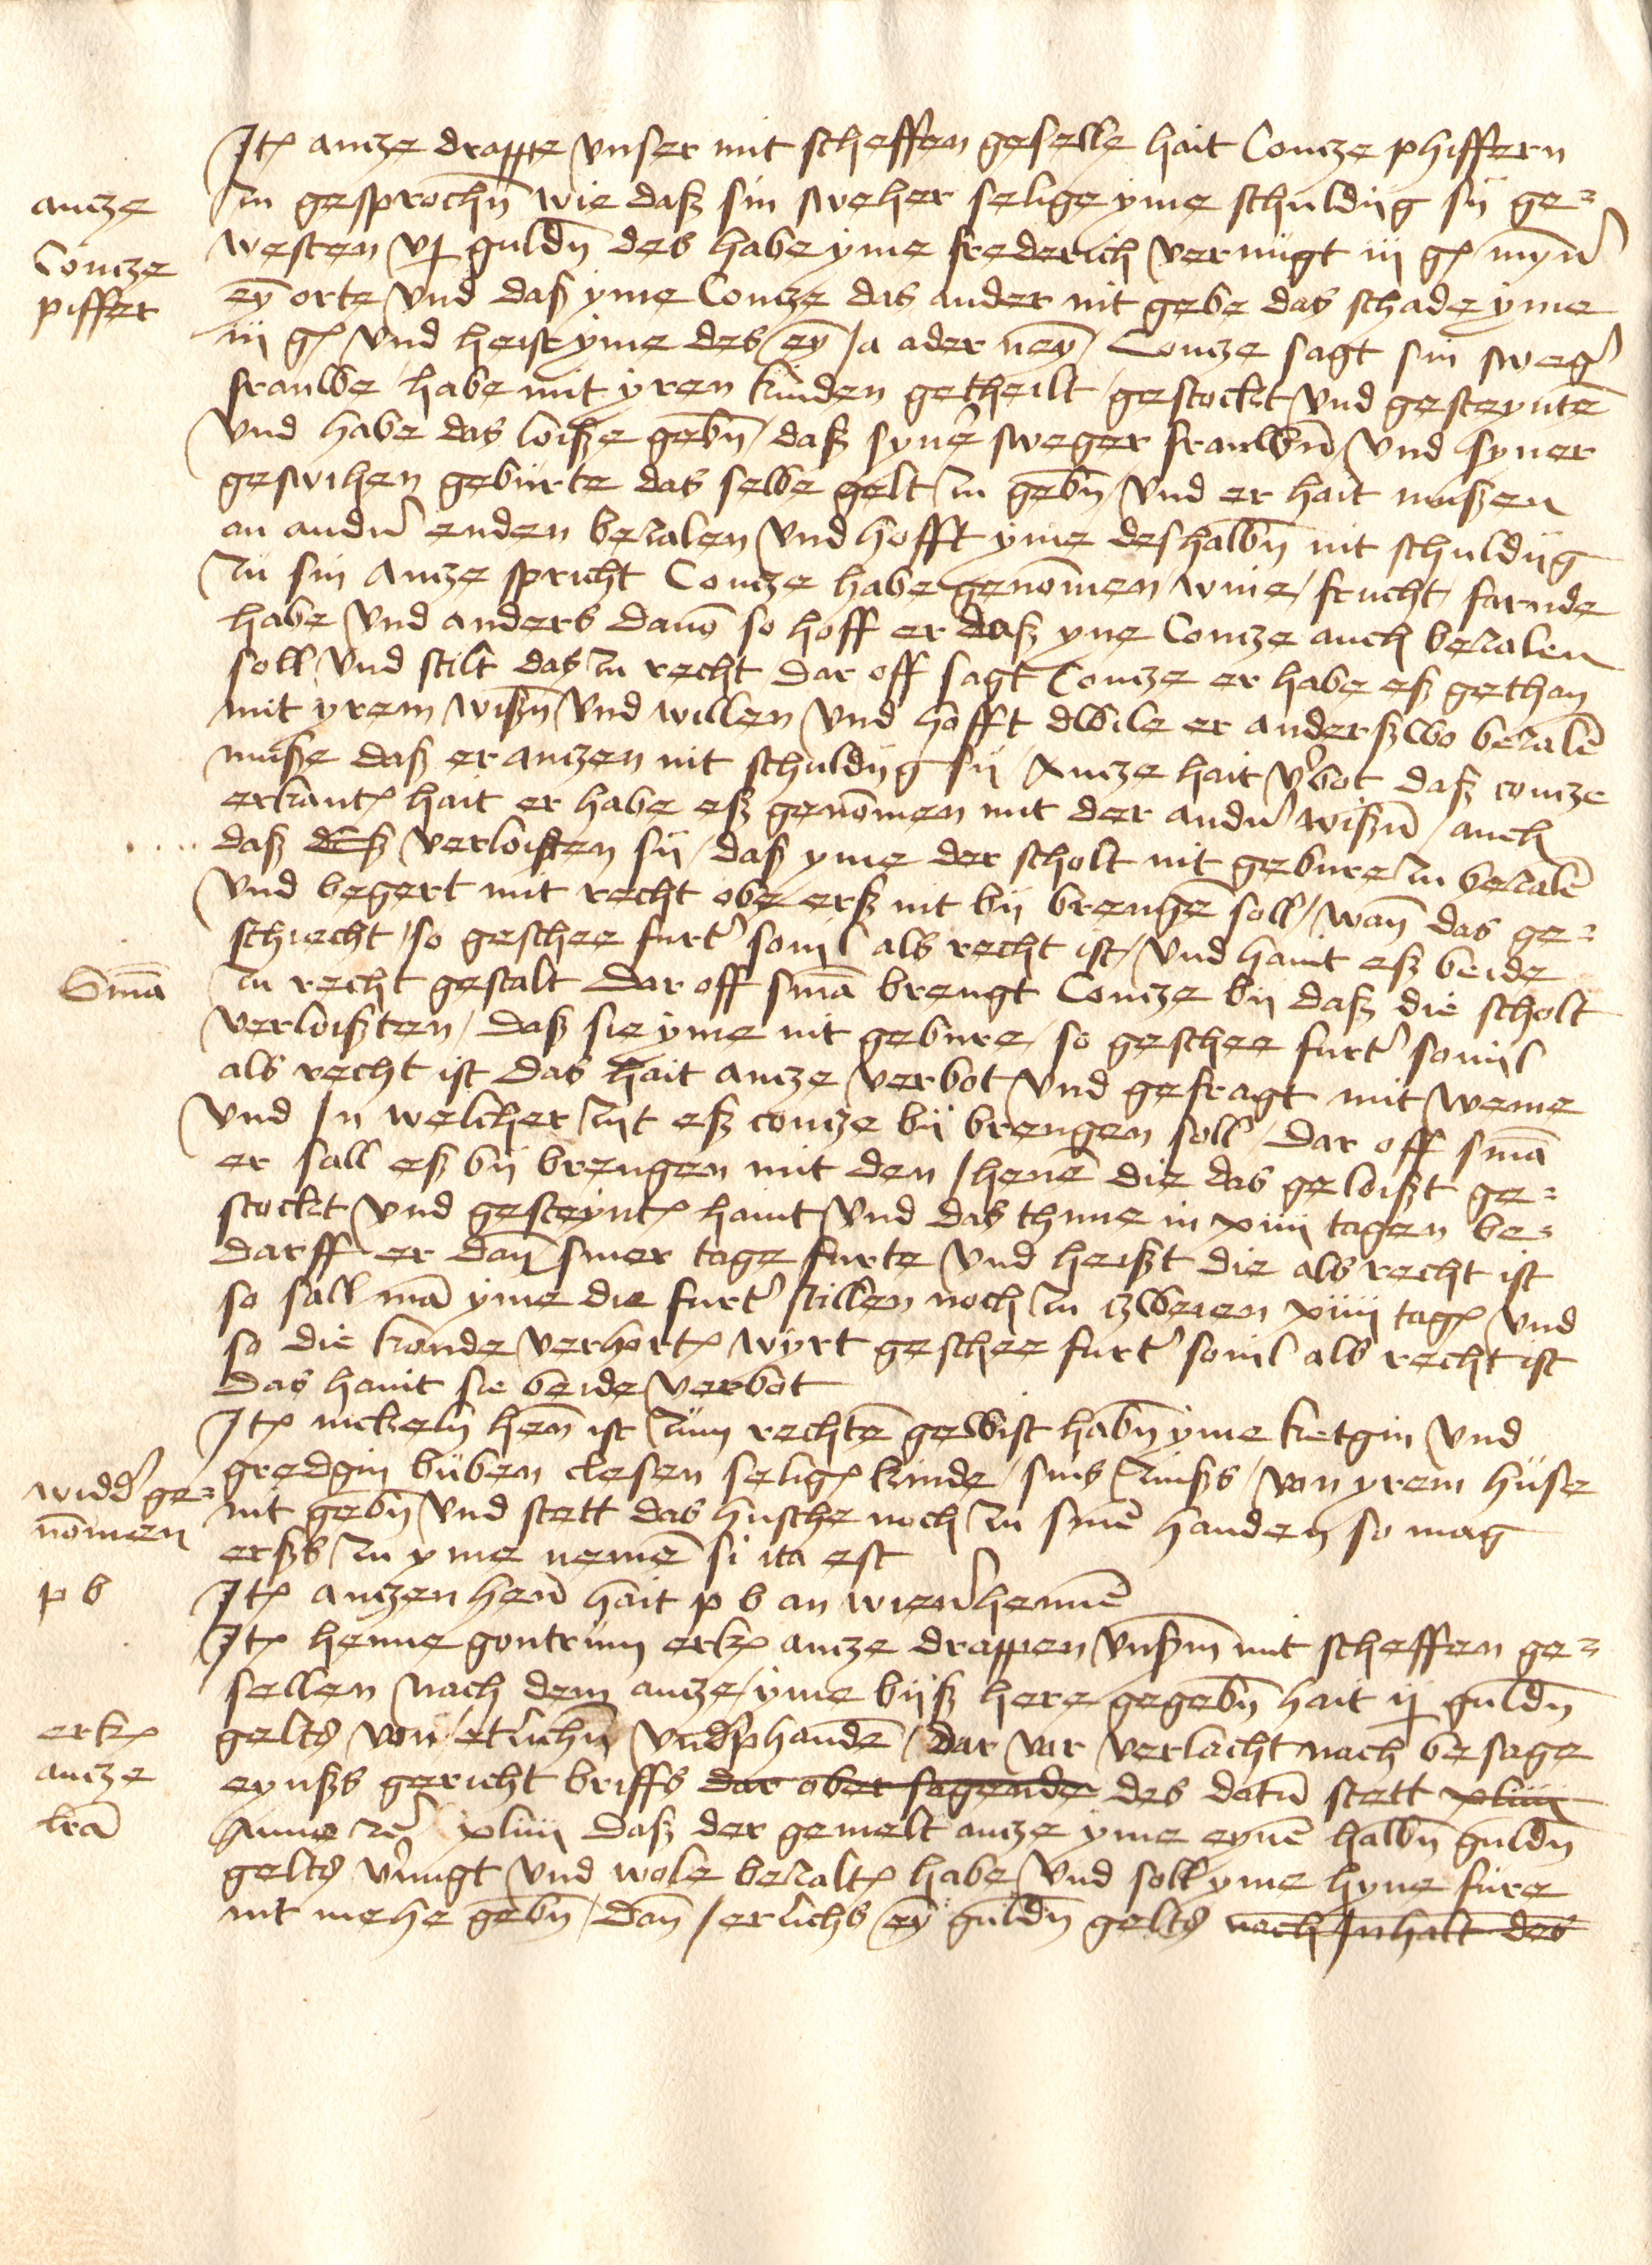 Itꝫ antze drappe vnser mit scheffen geselle hait Contze phiffern
antze
zu gesprochn̄ wie daß sin sweher selige yme schuldig sij ge=
westen vj guldn̄ des habe yme frederich vernugt iij gꝫ myn̄
Contze
piffer
eȳ orte vnd daß yme Contze das ander nit gebe das schade yme
iij gꝫ vnd heist yme des eȳ Ja ader neȳ Contze sagt sin sweg̉
frauwe habe mit yren kinden getheilt gestockt vnd gesteynt
vnd habe das loiße gebn̄ daß syn̉ sweger frauwen vnd syner
geswihen geburte das selbe gelt zu gebn̄ vnd er hait mußen
an andn̉ enden bezalen vnd hofft yme deshalbn̄ nit schuldig
zu sin Antze spricht Contze habe genōmen wine frucht farnde
habe vnd anders dauō so hoff er daß yne Contze auch bezalen
soll vnd stilt das zu recht dar off sagt Contze er habe eß gethan
mit yrem wißn̄ vnd willen vnd hofft dwile er anderßwo bezalē
muße daß er antzen nit schuldig sij Antze hait v̉bot daß contze
erkantꝫ hait er habe eß genōmen mit der andn̉ wißn̄ auch
daß deß verloisten sij daß yme der scholt nit gebure zu bezalē
vnd begert mit recht obe erß nit bij brengē soll wan̄ das ge=
schiecht so geschee furt̉ souil als recht ist vnd haint eß beide
Smā
zu recht gestalt dar off smā brengt Contze bij daß die scholt
verloißten daß sie yme nit gebure so geschee furt̉ souil
als recht ist das hait antze verbot vnd gefragt mit weme
vnd In welcher zijt eß contze bij brengen soll dar off smā
er sall eß bij brengen mit den Jhenē die das geloißt ge=
stockt vnd gesteyntꝫ haint vnd das thune in xiiii tagen be=
darff er dan̄ siner tage furte vnd heißt die als recht ist
so sall mā yme die furt̉ stillen noch zu zweien xiiii tagꝫ vnd
so die konde verhortꝫ wyrt geschee furt̉ souil als recht ist
das haint sie beide verbot
Itꝫ nickeln hen̄ ist zum rechtē gewist habn̄ yme ketgin vnd
gredgin buben clesen seligꝫ kinde sins zinßs von yrem huse
widd̉ ge=
nōmen
nit gebn̄ vnd stett das husche noch zu sinē handen so mag
erßs zu yme nemē si ita est
p b
Itꝫ antzen hen̄ hait p b an wien̉hennē
Itꝫ henne gontrum erkꝫ antze drappen vnßm̄ mit scheffen ge=
sellen nach dem antze yme bijß here gegebn̄ hait ij guldn̄
erkꝫ
antze
lrā
gelts von etlichn̄ vnd̉phandē dar vor verlacht nach besage
eynßs gericht briffs dar ober sagende des datū stett xliiii
Anno rē xliiii daß der gemelt antze yme eynē halbn̄ guldn̄
gelts v̉nugt vnd wole bezaltꝫ habe vnd soll yme hyne fure
nit mehe gebn̄ dan̄ Jerlichs eȳ guldn̄ gelts nach Inhalt des